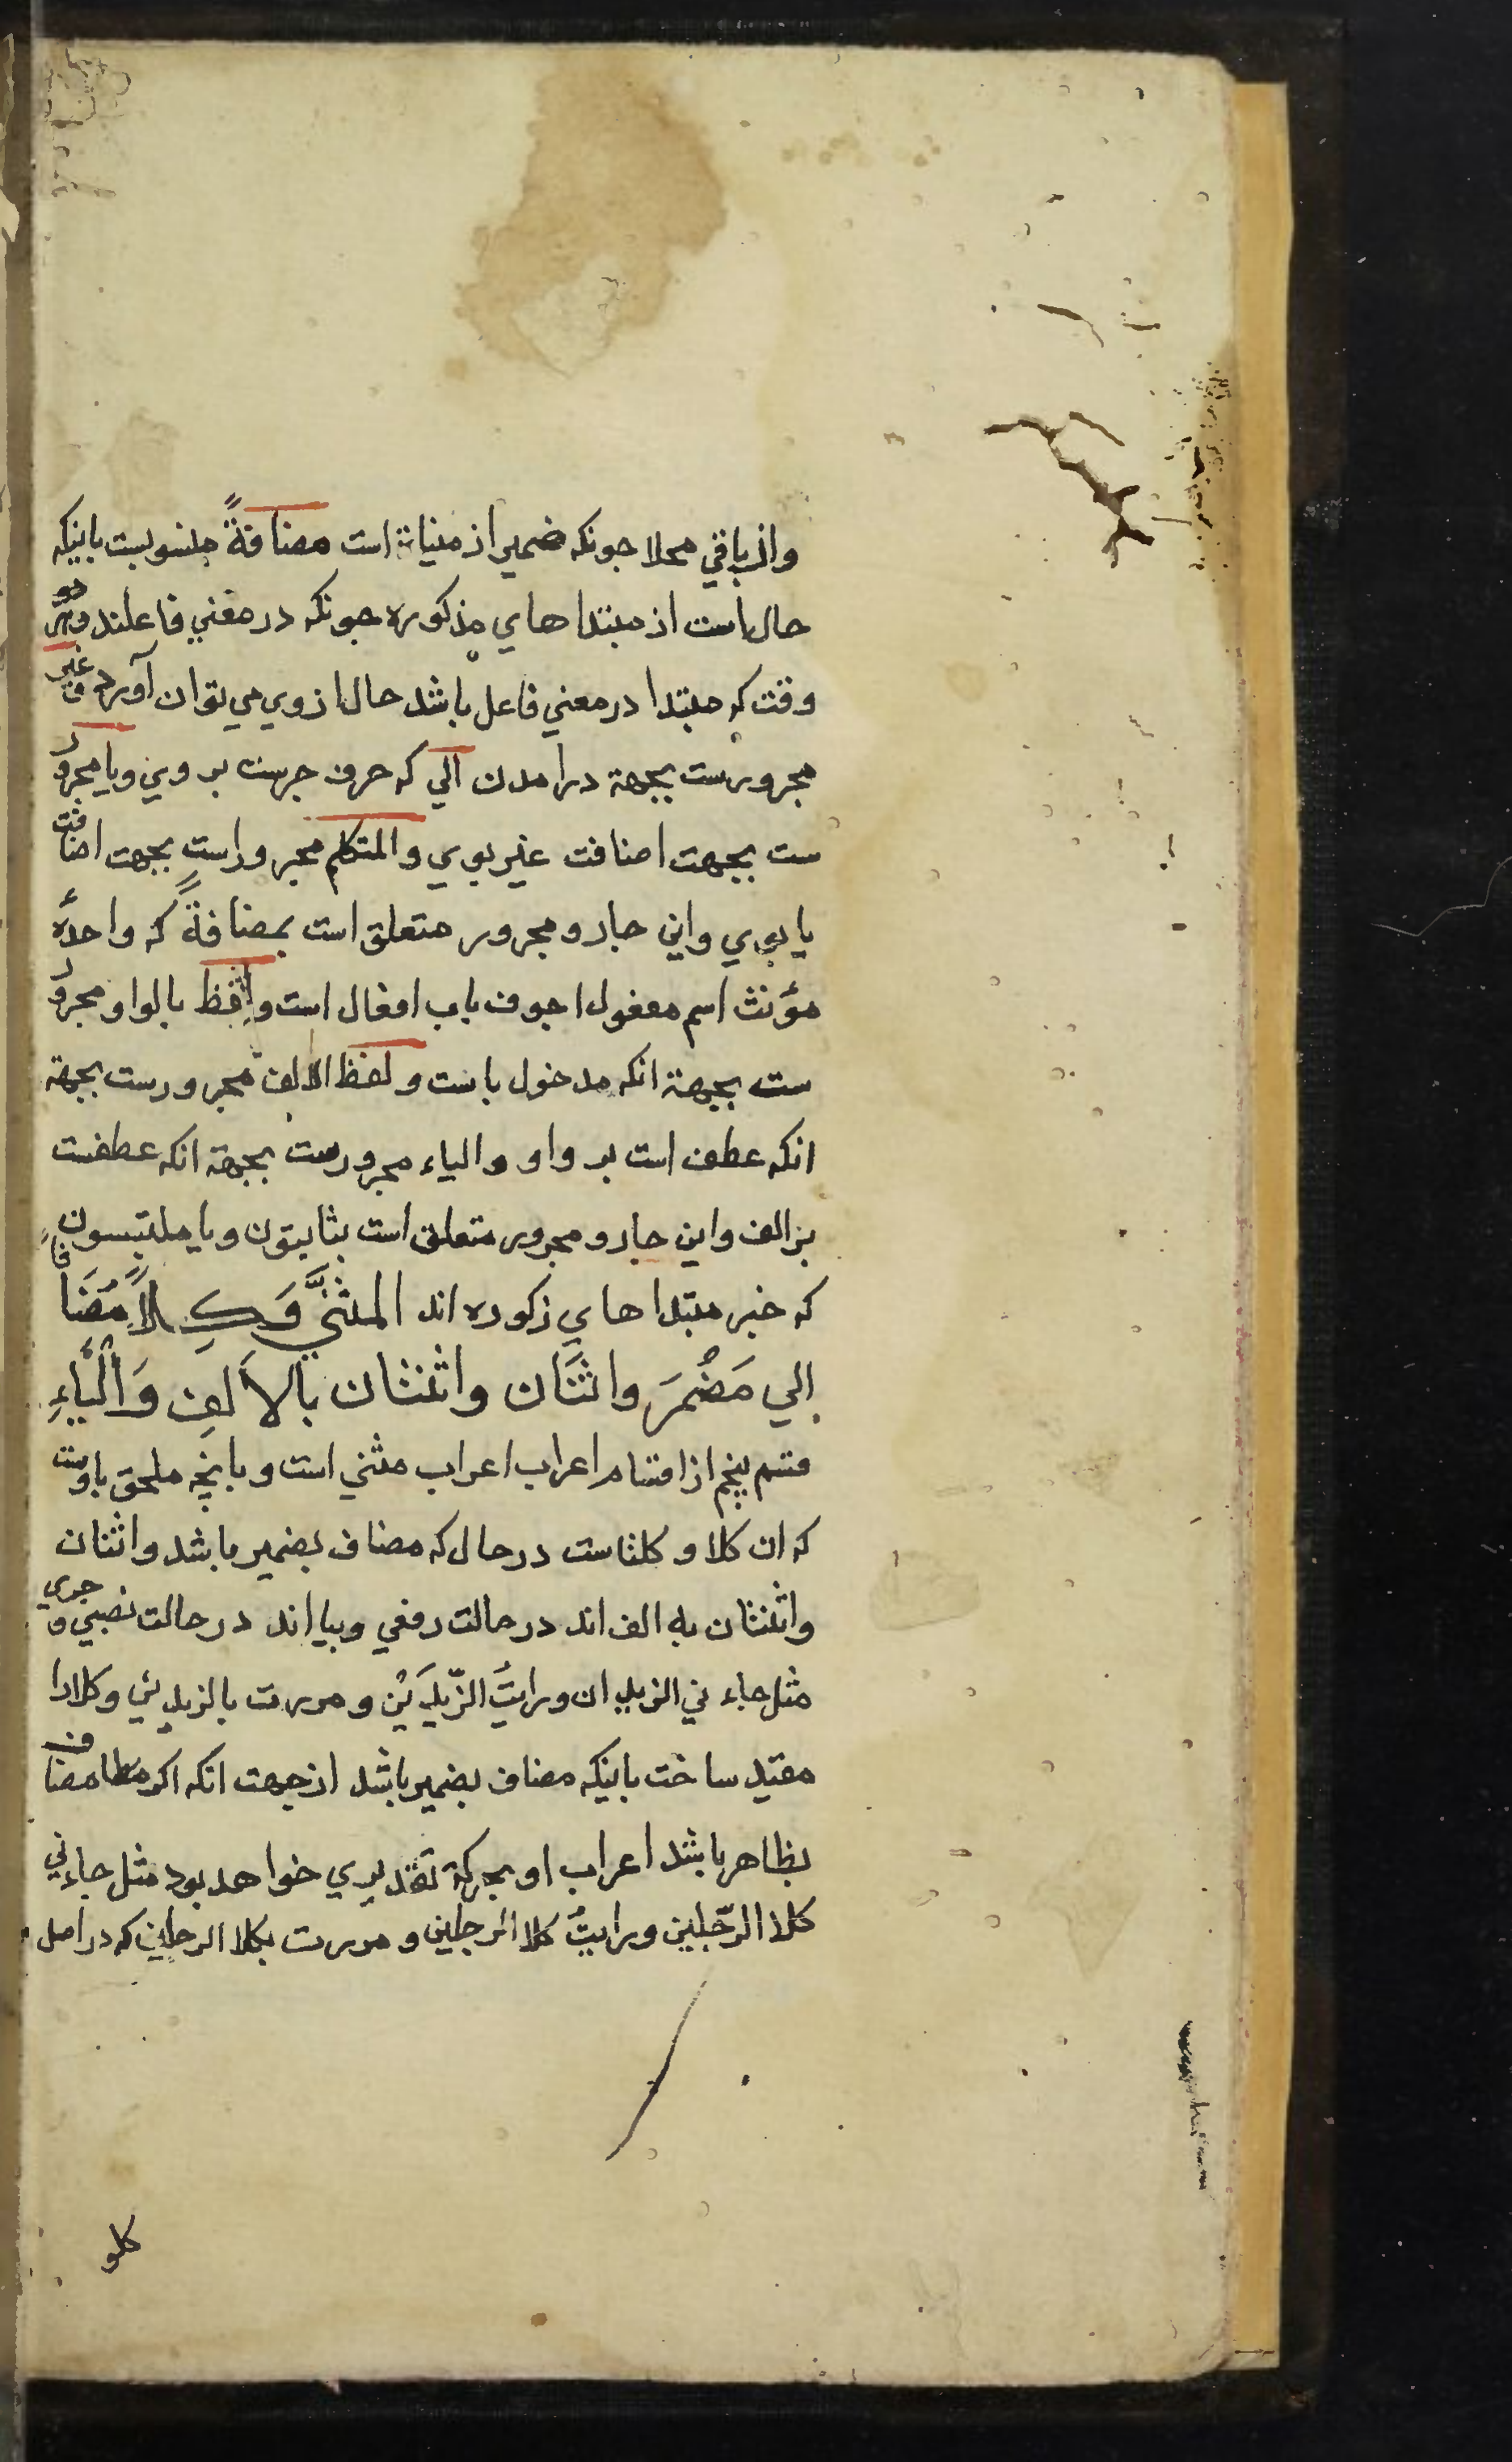 واز باقي محلا جونكه ضمير از منيات است مضافةً منسوبست باينكه
حال است از مبتدا هاي مذكوره جونكه در معني فاعلند و هر
وقت كه مبتدا در معني فاعل باشد حال از وي مي توان آورد و غير
مجرورست بجهة درامدن الي كه حرف جرست بر وي و يا مجرور
ست بجهت اضافت غير بوي و المتكلم مجروراست بجهت اضافت
يا بوي واين جار و مجرور متعلق است بمضافةً كه واحدهٔ
مؤنث اسم مفعول اجوف باب افعال است و لفظ بالواو مجرور
ست بجهة انكه مدخول باست و لفظ الالف مجرورست بجهة
انكه عطف است بر واو و الياء مجرورست بجهة انكه عطفست
بر الف واين جار و مجرور متعلق است بثابتون و يا ملتبسون
كه خبر مبتدا هاي ذكوره اند المثنَّي وَكِلاً مُضَافاً
إلي مَضْمَرَ واثنَان واثنتان بالاَلِفِ وَالْيَاءِ
قسم پنجم از اقسام اعراب اعراب مثني است و بانچه ملحق باوست
كه ان كلا و كلتاست در حال كه مضاف بضمير باشد و اثنان
و اثنتان به الف اند در حالت رفعي و بيا اند در حالت نصبي و جري
مثل جاء ني الزيدان ورايتُ الزّيدَيْن و مررت بالزيدين و كلا را
مقيد ساخت باينكه مضاف بضمير باشد از جهت انكه اكر مضاف
بظاهر باشد اعراب او بحركة تقديري خواهد بود مثل جاءني
كلا الرّجلين ورايتُ كلا الرجلين و مررت بكلا الرجلين كه در اصل
كلو